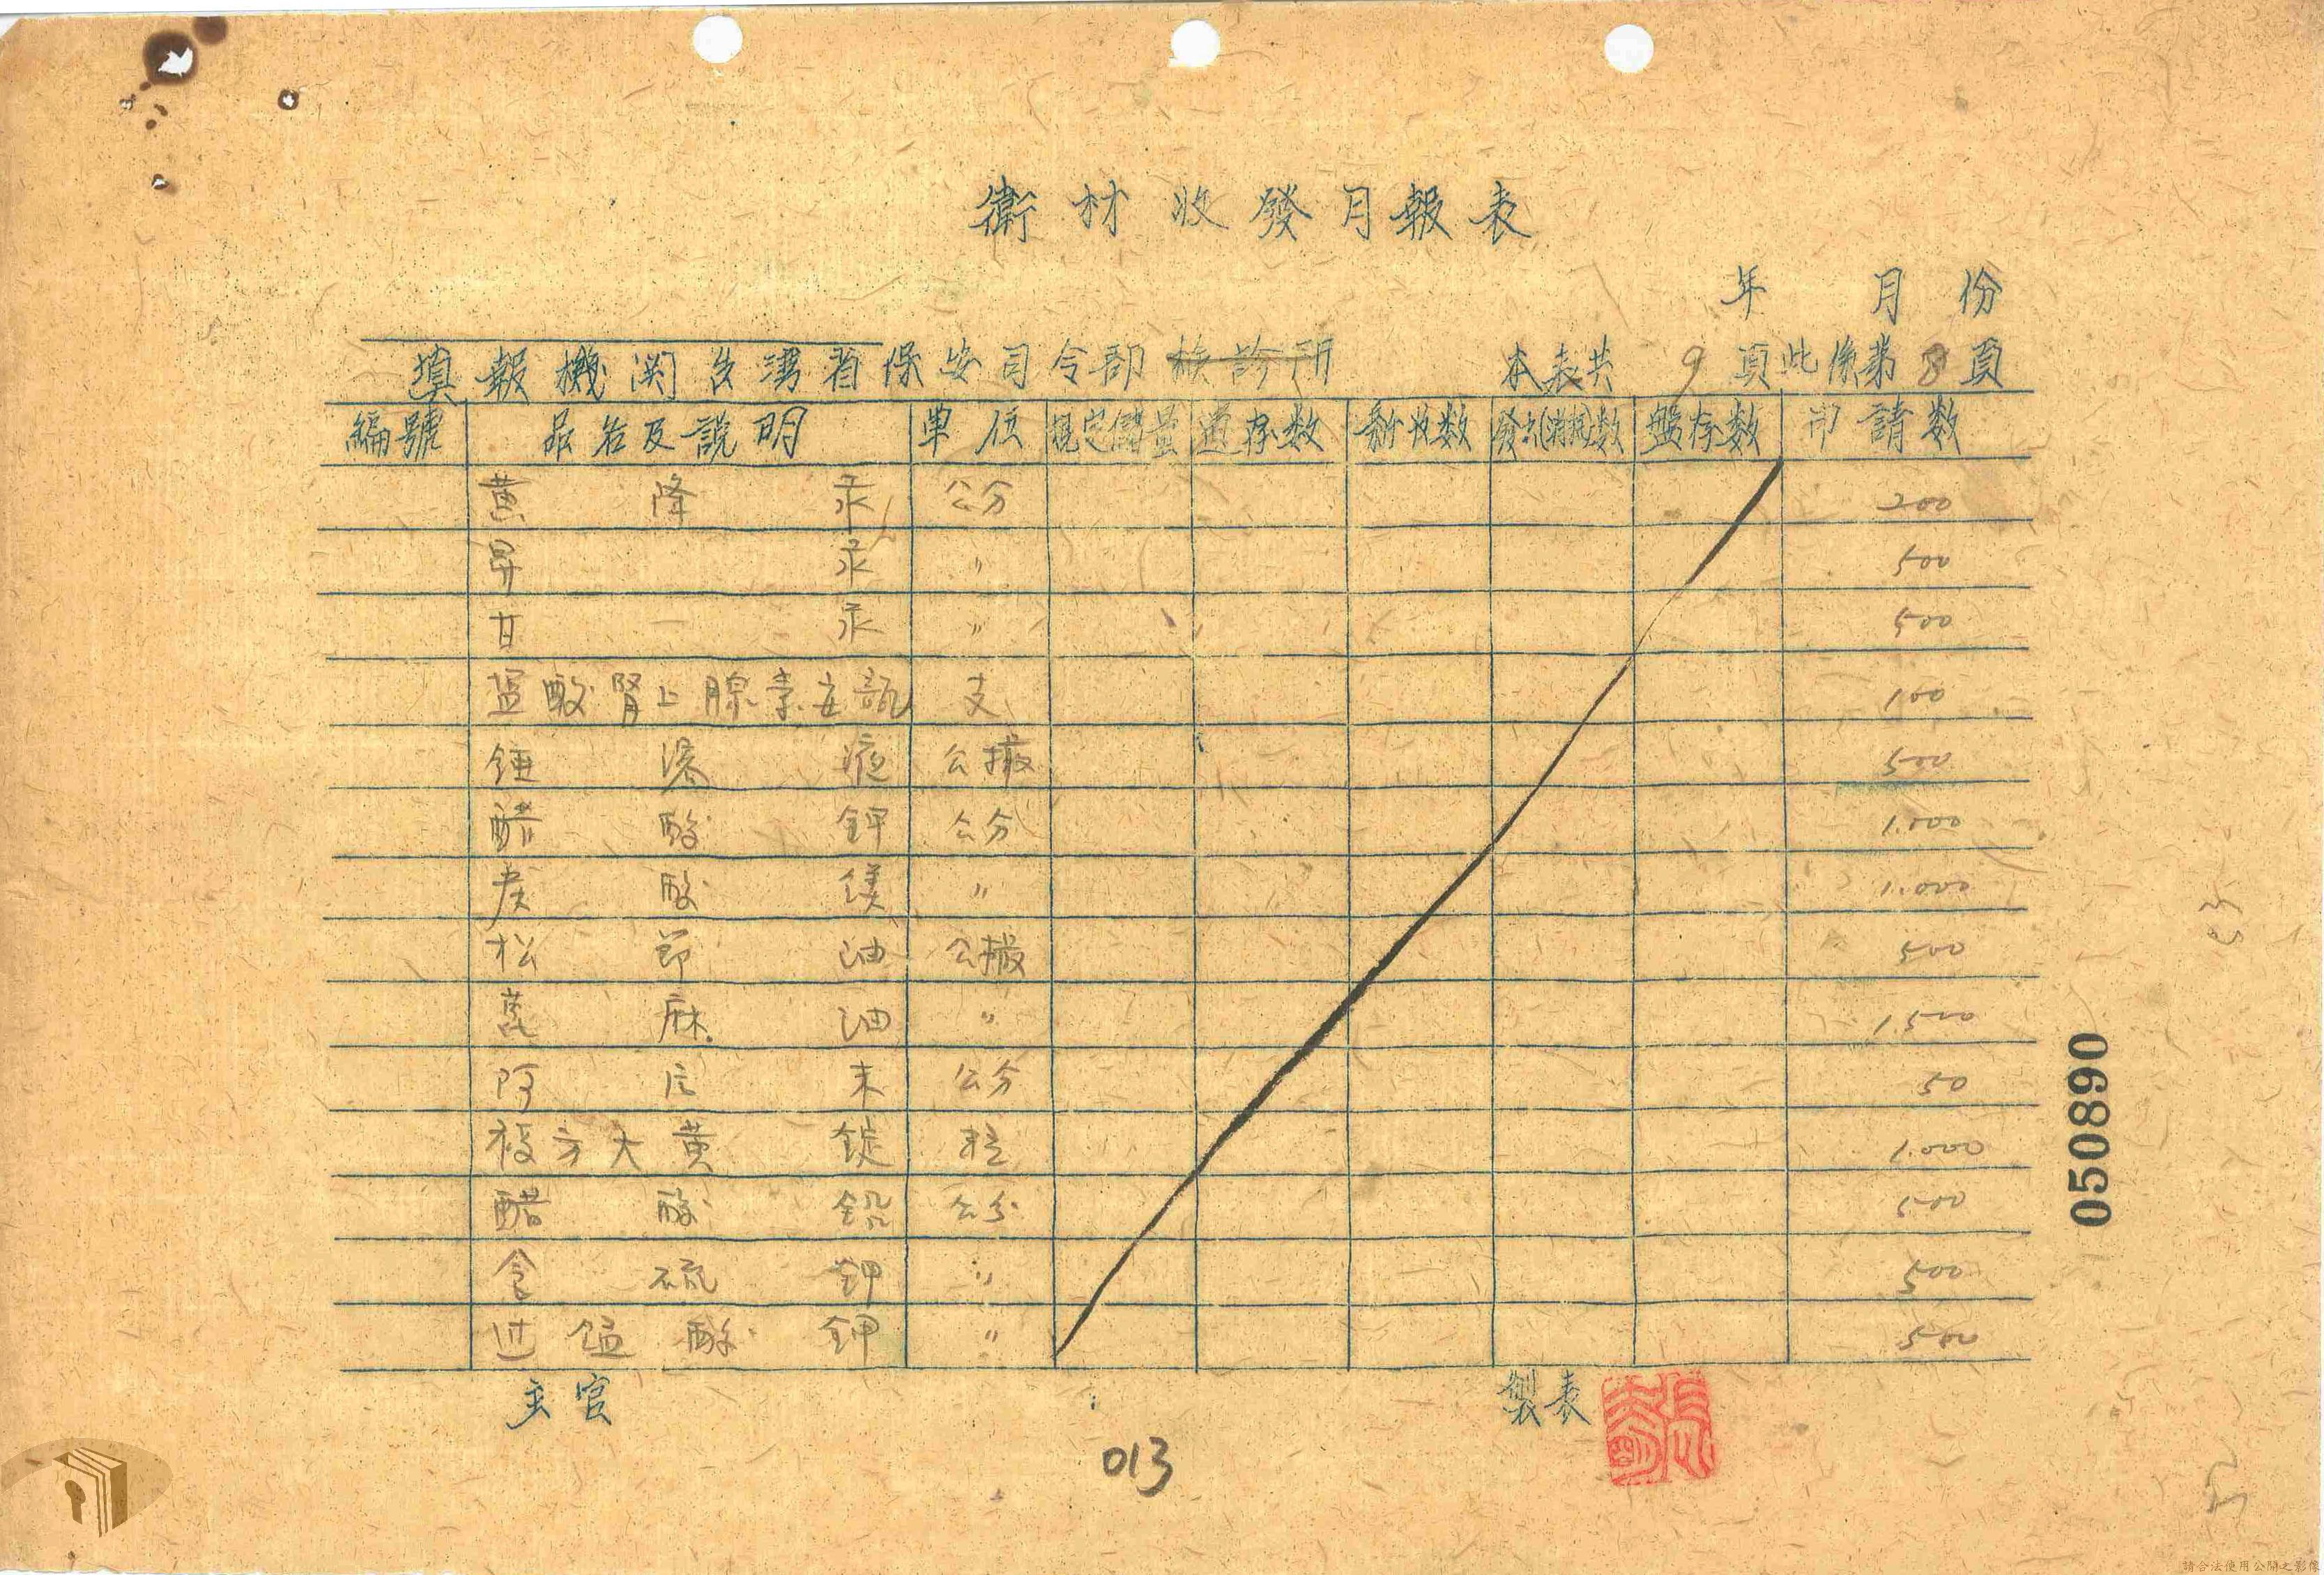 衛材收發月報表
年 月 份
填報機関台灣省保安司令部檢診所 本表共 9 頁此係第 8 頁
編號 品名及說明 單位 規定儲量 過存数 新收数 發出(消耗)数 盤存数 申請数
黃降汞 公分 200
昇汞 〃 500
甘汞 〃 500
盐酸腎上腺素安瓿 支 100
錘溴液 公撮 500
醋酸鉀 公分 1.000
炭酸鎂 〃 1.000
松節油 公撮 500
蓖麻油 〃 1.500
阿片末 公分 50
複方大黃錠 粒 1.000
醋酸鉛 公分 500
含硫鉀 〃 500
过锰酸鉀 〃 500
主官 製表
013
050890
請合法使用公開之影像